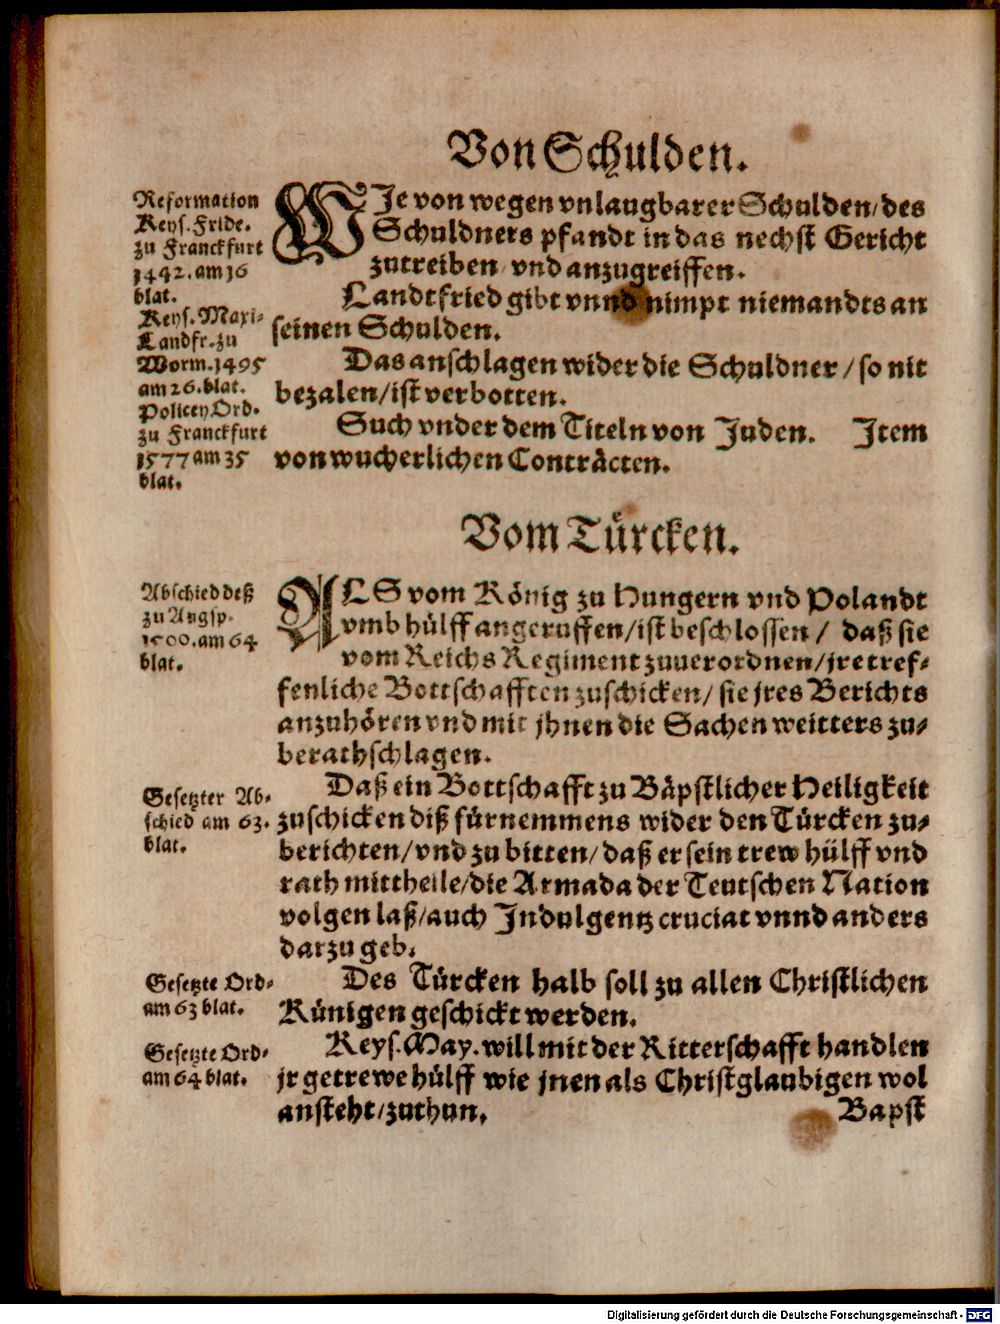 Von Schulden.
Reformation
Keys. Fride.
zu Franckfurt
1442. am 16
blat.
Keys. Maxi⸗
Landfr. zu
Worm. 1495
am 26. blat.
Policey Ord.
zu Franckfurt
1577 am 35
blat.
WJe von wegen vnlaugbarer Schulden/ des
Schuldners pfandt in das nechst Gericht
zutreiben/ vnd anzugreiffen.
Landtfried gibt vnnd nimpt niemandts an
seinen Schulden.
Das anschlagen wider die Schuldner / so nit
bezalen/ ist verbotten.
Such vnder dem Titeln von Juden. Jtem
von wucherlichen Conträcten.
Vom Türcken.
Abschied deß
zu Augsp.
1500. am 64
blat.
ALS vom König zu Hungern vnd Polandt
vmb hülff angeruffen/ ist beschlossen / daß sie
vom Reichs Regiment zuuerordnen/ jre tref⸗
fenliche Bottschafften zuschicken/ sie jres Berichts
anzuhören vnd mit jhnen die Sachen weitters zu⸗
berathschlagen.
Gesetzter Ab⸗
schied am 63.
blat.
Daß ein Bottschafft zu Bäpstlicher Heiligkeit
zuschicken diß fürnemmens wider den Türcken zu⸗
berichten/ vnd zu bitten/ daß er sein trew hülff vnd
rath mittheile/ die Armada der Teutschen Nation
volgen laß/ auch Jndulgentz cruciat vnnd anders
darzu geb.
Gesetzte Ord⸗
am 63 blat.
Des Türcken halb soll zu allen Christlichen
Künigen geschickt werden.
Gesetzte Ord⸗
am 64 blat.
Keys. May. will mit der Ritterschafft handlen
jr getrewe hülff wie jnen als Christglaubigen wol
ansteht/ zuthun.
Bapst
Digitalisierung gefördert durch die Deutsche Forschungsgemeinschaft - DFG